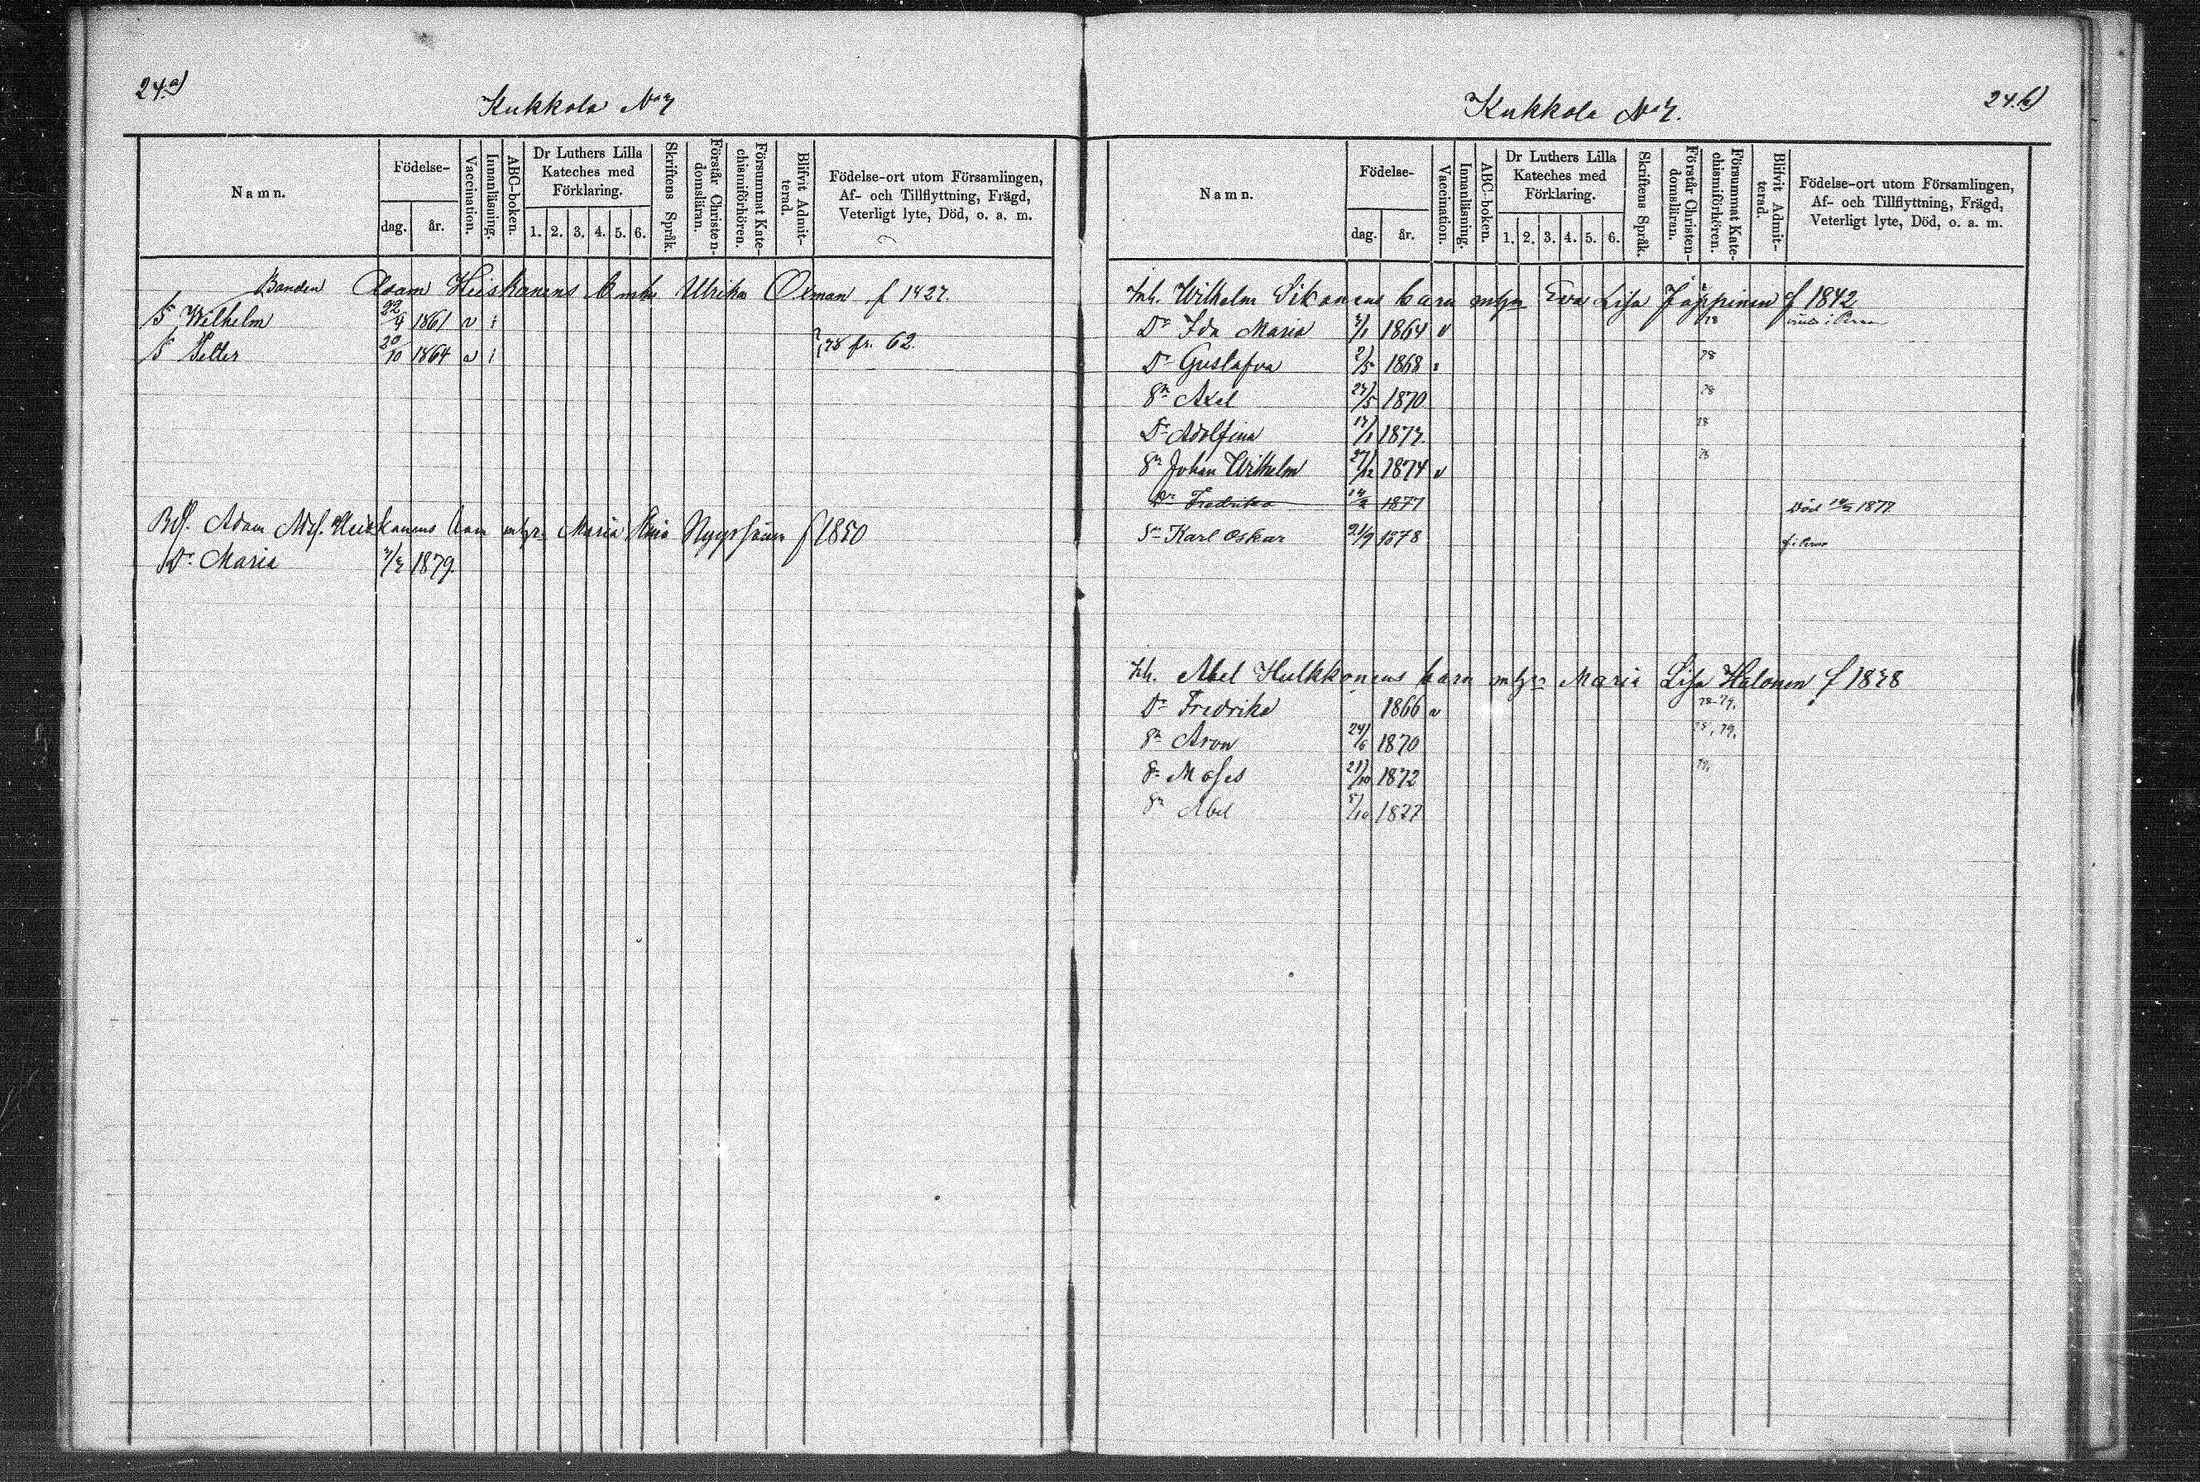 24.a)
Kukkola No 7
Namn.
Födelse-
dag.
år.
Vaccination.
Innanläsning.
ABC-boken.
Dr Luthers Lilla
Kateches med
Förklaring.
1. 2. 3. 4. 5. 6.
Skriftens Språk.
Förstår Christen-
domsläran.
Försummat Kate-
chismiförhören.
Blifvit Admit-
terad.
Födelse-ort utom Församlingen,
Af- och Tillflyttning, Frägd,
Veterligt lyte, Död, o. a. m.
Bonden Adam Heiskanens Ulrika Oxman f 1427.
S. Wilhelm 22/4 1861 v i
S. Petter 20/10 1864 v i 78 fr. 62.
Adam Heiskanens barn Maria f 1850
Dr. Maria 1879.
24.b)
Kukkola No 7.
Namn.
Födelse-
dag.
år.
Vaccination.
Innanläsning.
ABC-boken.
Dr Luthers Lilla
Kateches med
Förklaring.
1. 2. 3. 4. 5. 6.
Skriftens Språk.
Förstår Christen-
domsläran.
Försummat Kate-
chismiförhören.
Blifvit Admit-
terad.
Födelse-ort utom Församlingen,
Af- och Tillflyttning, Frägd,
Veterligt lyte, Död, o. a. m.
Inh. Wilhelm Sikanens barn Eva Lisa Jäppinen f 1842
Dr Ida Maria 1864 v 78
Dr Gustafva 2/5 1868 78
Sn Axel 27/5 1870 78
Dr Adolfina 1877. 78
Sn Johan Wilhelm 27/12 1874 v 78
Dr Fredrika 1877 Död 1877
Sn Karl Oskar 21/9 1878
Inh. Abel Hulkkonens barn Maria Lisa Halonen f 1828
Dr Fredrika 1866 v 78-79.
Sn Aron 24/6 1870 78, 79.
Sn Moses 21/10 1872 79.
Sn Abel 5/10 1877